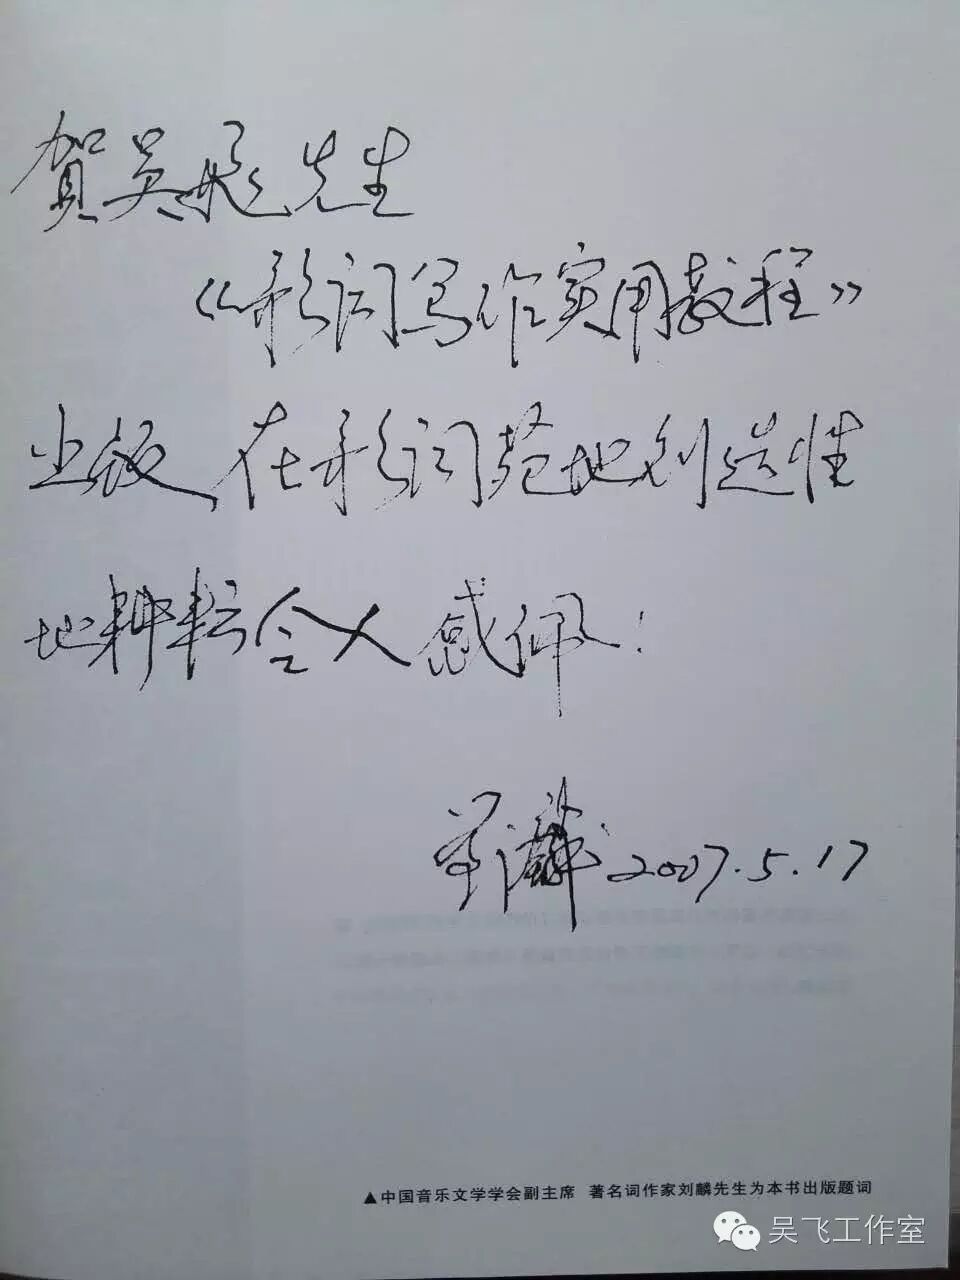 賀吴飛先生
《歌词写作实用教程》
出版，在歌词苑地创造性
地耕耘令人感佩！
刘麟 2007.5.17
▲中国音乐文学学会副主席 著名词作家刘麟先生为本书出版题词
吴飞工作室